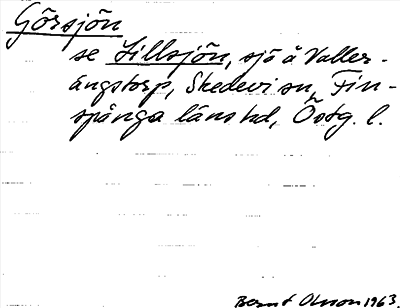 Görsjön
se Lillsjön, sjö å Valler-
ängstorp, Skedevi sn, Fin-
spånga länshd, Östg. l.
Bernt Olsson 1963.